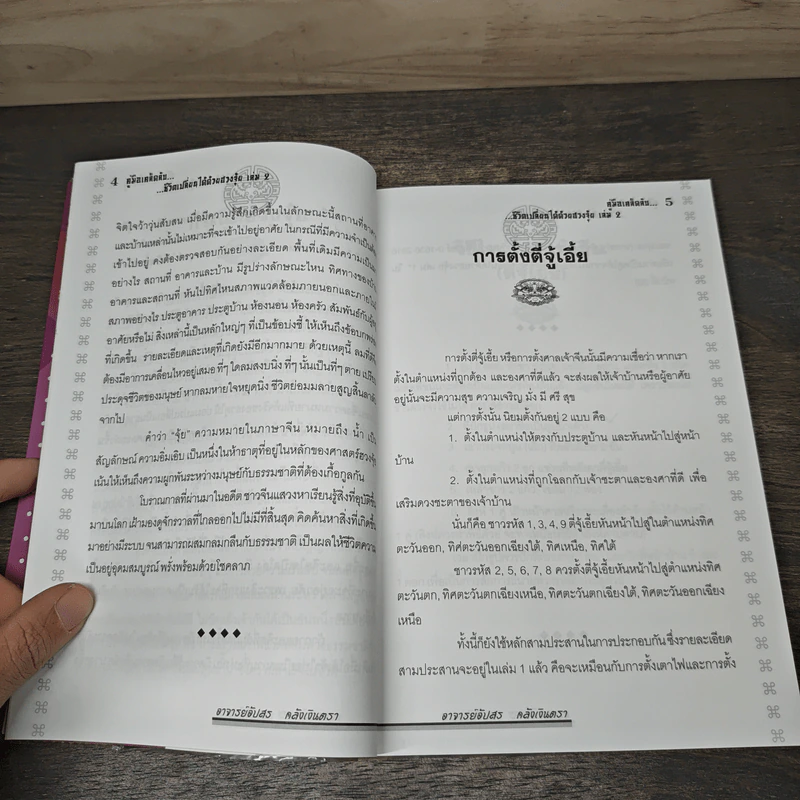 4 คู่มือเคล็ดลับ...
...ชีวิตเปลี่ยนได้ด้วยฮวงจุ้ย เล่ม 2
จิตใจว้าวุ่นสับสน เมื่อมีความรู้สึกเกิดขึ้นในลักษณะนี้สถานที่อาคาร
และบ้านเหล่านั้นไม่เหมาะที่จะเข้าไปอยู่อาศัย ในกรณีที่มีความจำเป็นต้อง
เข้าไปอยู่ คงต้องตรวจสอบกันอย่างละเอียด พื้นที่เดิมมีความเป็นมา
อย่างไร สถานที่ อาคารและบ้าน มีรูปร่างลักษณะไหน ทิศทางของบ้าน
อาคารและสถานที่ หันไปทิศไหนสภาพแวดล้อมภายนอกและภายใน
สภาพอย่างไร ประตูอาคาร ประตูบ้าน ห้องนอน ห้องครัว สัมพันธ์กับผู้อยู่
อาศัยหรือไม่ สิ่งเหล่านี้เป็นหลักใหญ่ๆ ที่เป็นข้อบ่งชี้ ให้เห็นถึงข้อบกพร่อง
ที่เกิดขึ้น รายละเอียดและเหตุที่เกิดยังมีอีกมากมาย ด้วยเหตุนี้ ลมที่ดี
ต้องมีอาการเคลื่อนไหวอยู่เสมอ ที่ๆ ใดลมสงบนิ่ง ที่ๆ นั้นเป็นที่ๆ ตาย เปรียบ
ประดุจชีวิตของมนุษย์ หากลมหายใจหยุดนิ่ง ชีวิตย่อมมลายสูญสิ้นลา
จากไป
คำว่า "จุ้ย" ความหมายในภาษาจีน หมายถึง น้ำ เป็น
สัญลักษณ์ ความอิ่มเอิบ เป็นหนึ่งในห้าธาตุที่อยู่ในหลักของศาสตร์ฮวงจุ้ย
เน้นให้เห็นถึงความผูกพันระหว่างมนุษย์กับธรรมชาติที่ต้องเกื้อกูลกัน
โบราณกาลที่ผ่านมาในอดีต ชาวจีนแสวงหาเรียนรู้สิ่งที่อุบัติขึ้น
มาบนโลก เฝ้ามองดูจักรวาลที่ไกลออกไปไม่มีที่สิ้นสุด คิดค้นหาสิ่งที่เกิดขึ้น
มาอย่างมีระบบ จนสามารถผสมกลมกลืนกับธรรมชาติ เป็นผลให้ชีวิตความ
เป็นอยู่อุดมสมบูรณ์ พรั่งพร้อมด้วยโชคลาภ
อาจารย์อัปสร คลังเงินตรา
คู่มือเคล็ดลับ... 5
...ชีวิตเปลี่ยนได้ด้วยฮวงจุ้ย เล่ม 2
การตั้งตี่จู้เอี้ย
การตั้งตี่จู้เอี้ย หรือการตั้งศาลเจ้าจีนนั้นมีความเชื่อว่า หากเรา
ตั้งในตำแหน่งที่ถูกต้อง และองศาที่ดีแล้ว จะส่งผลให้เจ้าบ้านหรือผู้อาศัย
อยู่นั้นจะมีความสุข ความเจริญ มั่ง มี ศรี สุข
แต่การตั้งนั้น นิยมตั้งกันอยู่ 2 แบบ คือ
1. ตั้งในตำแหน่งให้ตรงกับประตูบ้าน และหันหน้าไปสู่หน้า
บ้าน
2. ตั้งในตำแหน่งที่ถูกโฉลกกับเจ้าชะตาและองศาที่ดี เพื่อ
เสริมดวงชะตาของเจ้าบ้าน
นั่นก็คือ ชาวรหัส 1, 3, 4, 9 ตี่จู้เอี้ยหันหน้าไปสู่ในตำแหน่งทิศ
ตะวันออก, ทิศตะวันออกเฉียงใต้, ทิศเหนือ, ทิศใต้
ชาวรหัส 2, 5, 6, 7, 8 ควรตั้งตี่จู้เอี้ยหันหน้าไปสู่ตำแหน่งทิศ
ตะวันตก, ทิศตะวันตกเฉียงเหนือ, ทิศตะวันตกเฉียงใต้, ทิศตะวันออกเฉียง
เหนือ
ทั้งนี้ก็ยังใช้หลักสามประสานในการประกอบกัน ซึ่งรายละเอียด
สามประสานจะอยู่ในเล่ม 1 แล้ว คือจะเหมือนกับการตั้งเตาไฟและการตั้ง
อาจารย์อัปสร คลังเงินตรา